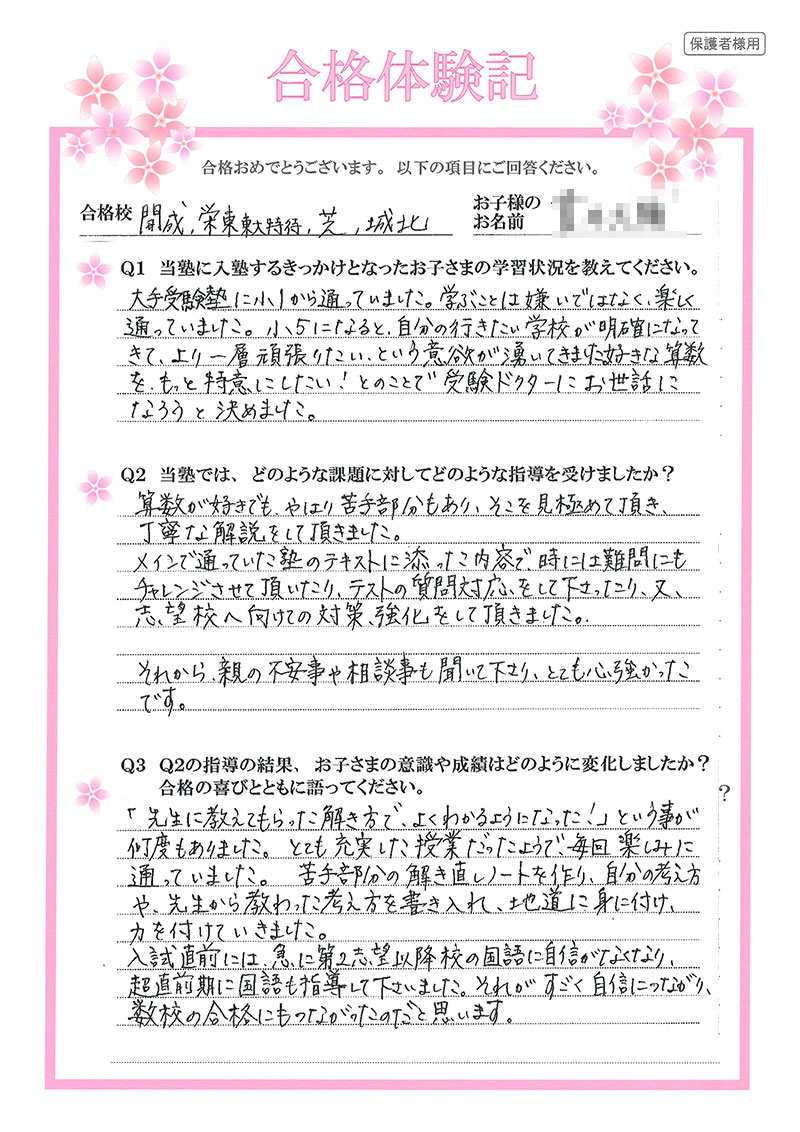 保護者様用
合格体験記
合格おめでとうございます。以下の項目にご回答ください。
合格校 開成, 栄東東大特待, 芝, 城北
お子様の
お名前
Q1 当塾に入塾するきっかけとなったお子さまの学習状況を教えてください。
大手受験塾に小1から通っていました。学ぶことは嫌いではなく、楽しく
通っていました。小5になると、自分の行きたい学校が明確になって
きて、より一層頑張りたい、という意欲が湧いてきました。好きな算数
を、もっと得意にしたい!とのことで受験ドクターにお世話に
なろうと決めました。
Q2 当塾では、どのような課題に対してどのような指導を受けましたか?
算数が好きでも、やはり苦手部分もあり、そこを見極めて頂き、
丁寧な解説をして頂きました。
メインで通っていた塾のテキストに添った内容で、時には難問にも
チャレンジさせて頂いたり、テストの質問対応、をして下さったり、又、
志望校へ向けての対策、強化をして頂きました。
それから、親の不安事や相談事も聞いて下さり、とても心強かった
です。
Q3 Q2の指導の結果、お子さまの意識や成績はどのように変化しましたか?
合格の喜びとともに語ってください。
?
「先生に教えてもらった解き方で、よくわかるようになった!」という事が
何度もありました。とても充実した授業だったようで毎回楽しみに
通っていました。 苦手部分の解き直しノートを作り、自分の考え方
や、先生から教わった考え方を書き入れ、地道に身に付け、
力を付けていきました。
入試直前には、急に第2志望以降校の国語に自信がなくなり、
超直前期に国語も指導して下さいました。それがすごく自信につながり、
数校の合格にもつながったのだと思います。